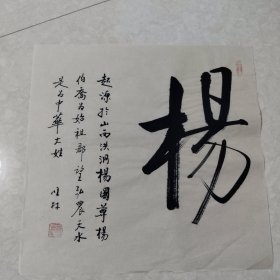 楊
起源於山西洪洞楊國單楊
伯喬為始祖郡望弘農天水
是為中華大姓